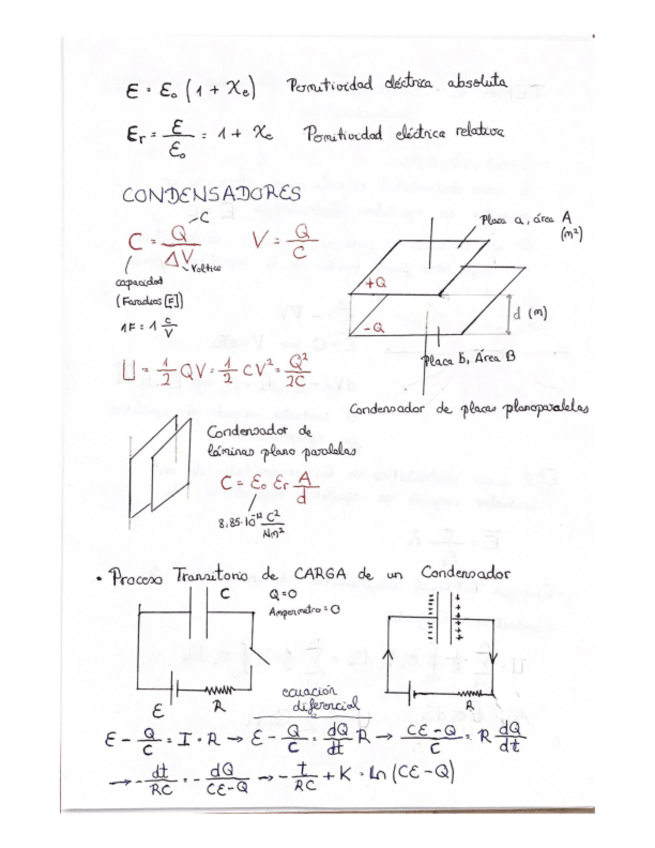 ε = ε₀ (1 + χe) Permitividad eléctrica absoluta
εr = ε/ε₀ = 1 + χe Permitividad eléctrica relativa
CONDENSADORES
C = Q/ΔV V = Q/C
C
Voltios
capacidad
(Faradios [F])
1F = 1 C/V
Placa a, área A
(m²)
+Q
-Q
d (m)
Placa b, Área B
U = 1/2 QV = 1/2 CV² = Q²/2C
Condensador de placas planoparalelas
Condensador de
láminas plano paralelas
C = ε₀ εr A/d
8,85·10⁻¹² C²/Nm²
• Proceso Transitorio de CARGA de un Condensador
C Q=0
Amperímetro = 0
ε R
R
ecuación
diferencial
ε - Q/C = I · R → ε - Q/C = dQ/dt R → Cε-Q/C = R dQ/dt
→ - dt/RC = - dQ/Cε-Q → - t/RC + K = ln (Cε-Q)